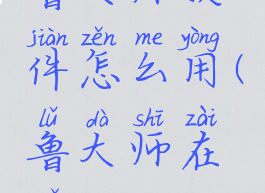 jiàn zěn me yòng
件怎么用(
lǔ dà shī zài
鲁大师在